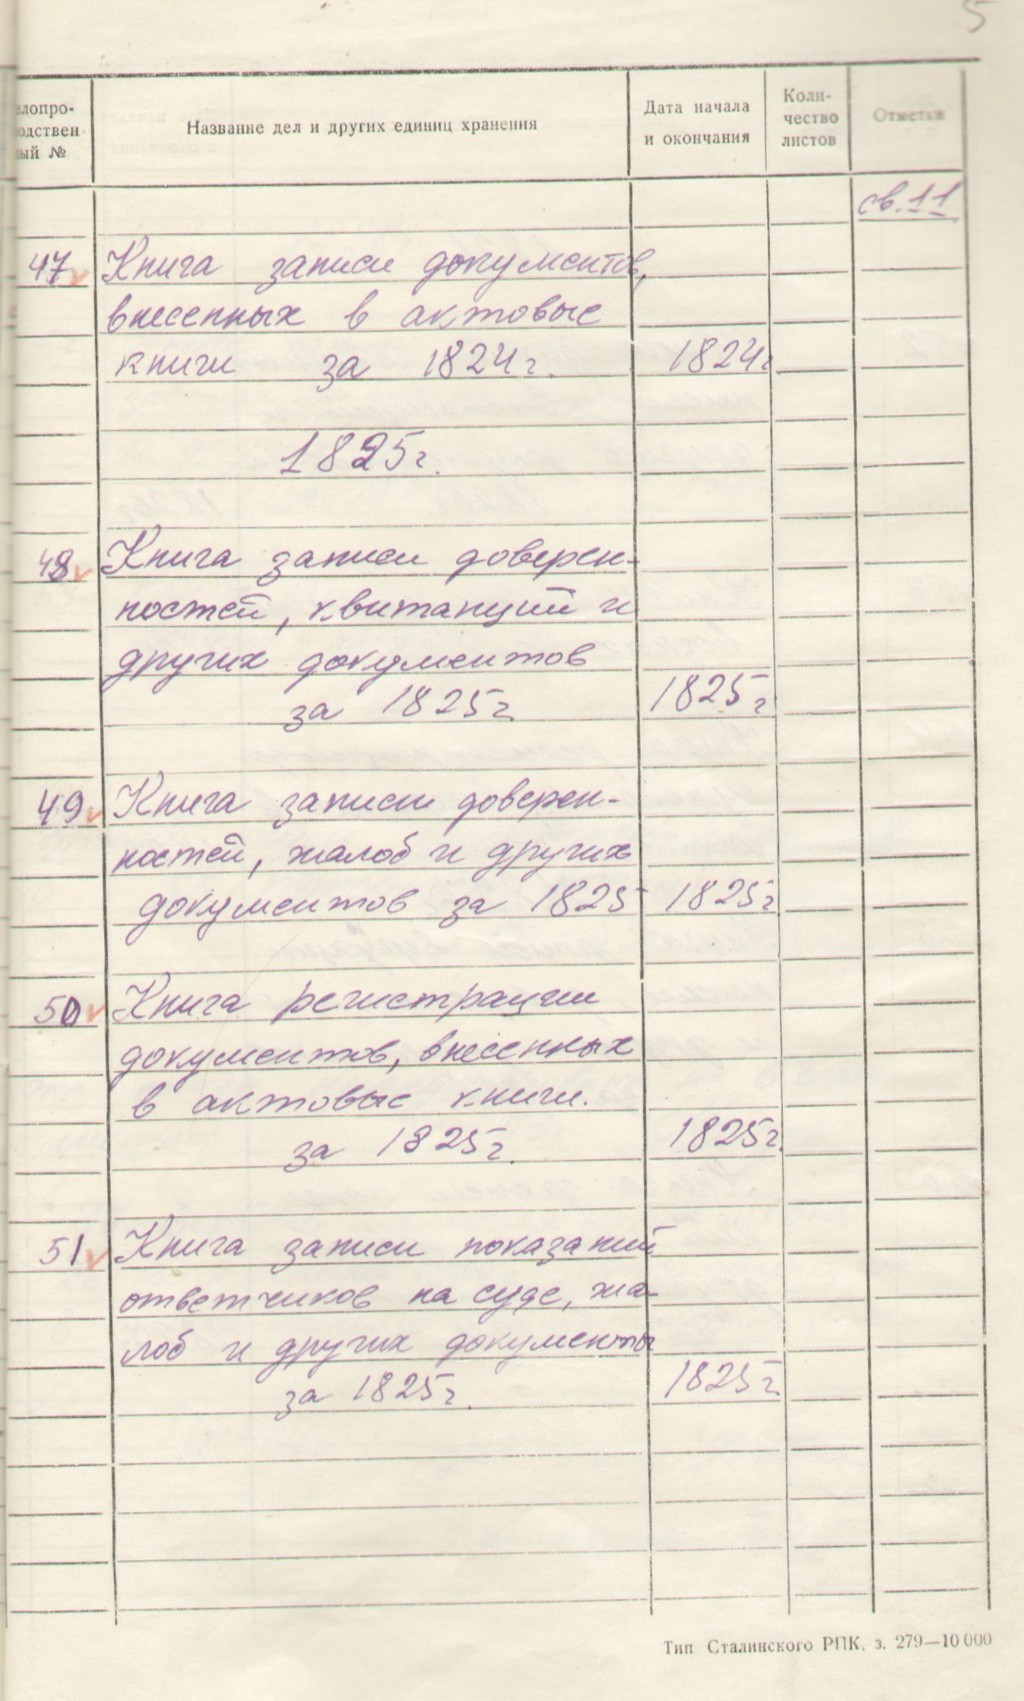 5
елопро-
одствен-
ный №
Название дел и других единиц хранения
Дата начала
и окончания
Коли-
чество
листов
Отметки
св. 11
47 Книга записи документов,
внесенных в актовые
книги за 1824 г. 1824 г
1825 г.
48 Книга записи доверен-
ностей, квитанций и
других документов
за 1825 г. 1825 г
49 Книга записи доверен-
ностей, жалоб и других
документов за 1825 1825 г
50 Книга регистрации
документов, внесенных
в актовые книги.
за 1825 г. 1825 г
51 Книга записи показаний
ответчиков на суде, жа-
лоб и других документы
за 1825 г. 1825 г.
Тип Сталинского РПК, з. 279—10 000